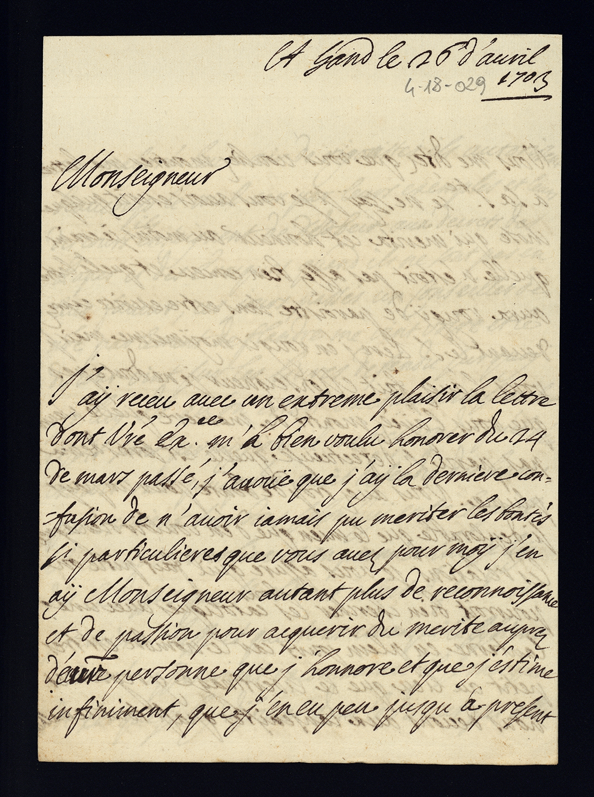 A Gand le 26 d'avril
1703
4-18-029
Monseigneur
J'aÿ receu avec un extreme plaisir la lettre
dont Vré Ex.ce m'à bien voulu honorer du 24
de mars passé, j'avoüe que j'aÿ la derniere con-
-fusion de n'avoir iamais pu meriter les bontés
si particulieres que vous avez pour moy j'en
aÿ Monseigneur autant plus de reconnoissance
et de passion pour acquerir du merite auprez
d'une personne que j'honnore et que j'éstime
infiniment, que j'en eu peu jusqu'à present